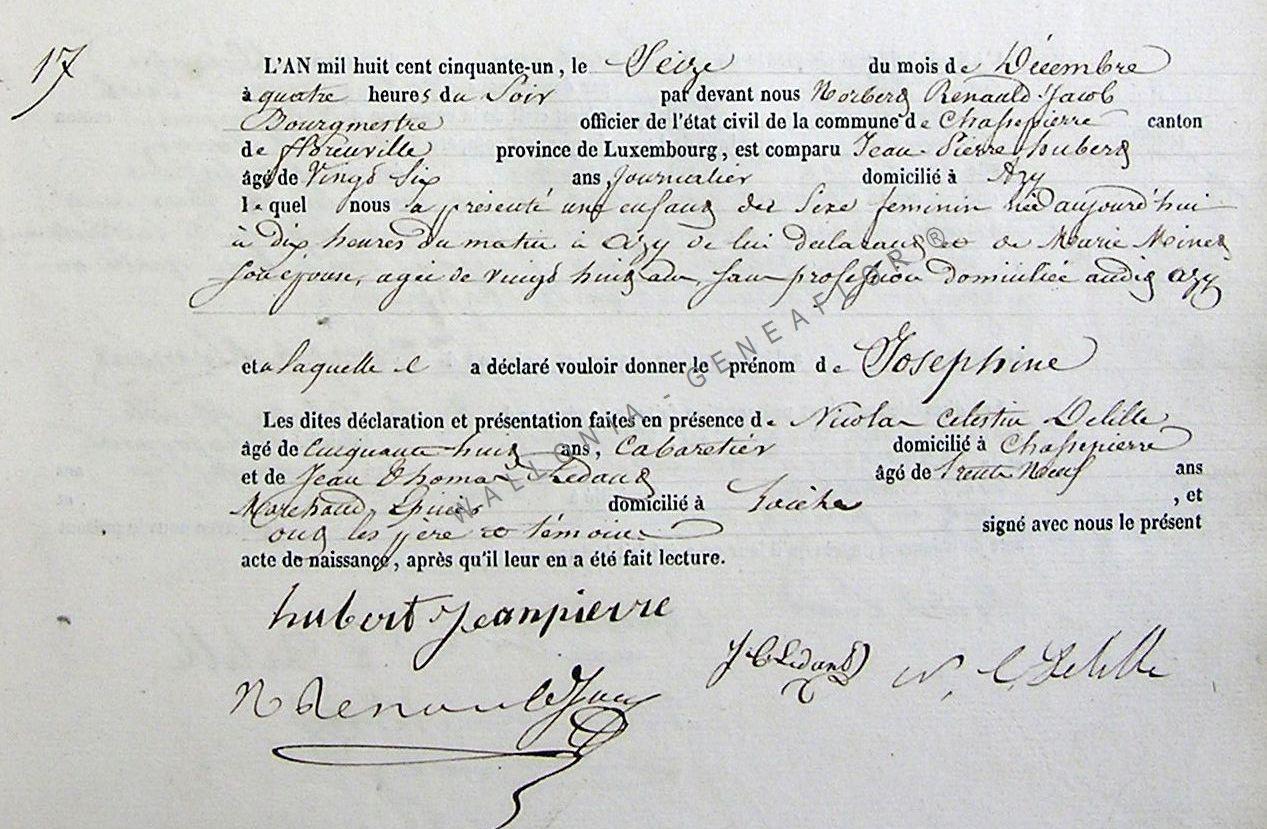 17
L'AN mil huit cent cinquante-un, le Seize du mois de Décembre
à quatre heures du Soir par devant nous Norbert Renauld Jacob
Bourgmestre officier de l'état civil de la commune de Chassepierre canton
de florenville province de Luxembourg, est comparu Jean Pierre hubert
âgé de Vingt Six ans Journalier domicilié à Azy
lequel nous a présenté une enfant du Sexe feminin née aujourd'hui
à dix heures du matin à Azy de lui déclarant et de Marie
son épouse, agée de vingt huit ans, sans profession domiciliée audit azy
et a laquelle il a déclaré vouloir donner le prénom de Josephine
Les dites déclaration et présentation faites en présence de Nicolas Celestin Delille
âgé de Cinquante huit ans, Cabaretier domicilié à Chassepierre
et de Jean Thomas Ledant âgé de trente Neuf ans
Marchand Epicier domicilié à , et
ont les père et témoins signé avec nous le présent
acte de naissance, après qu'il leur en a été fait lecture.
hubert Jeanpierre
Ledant N. C. Delille
N Renauld Jacob
WALLONIA - GENEAFLOR ®